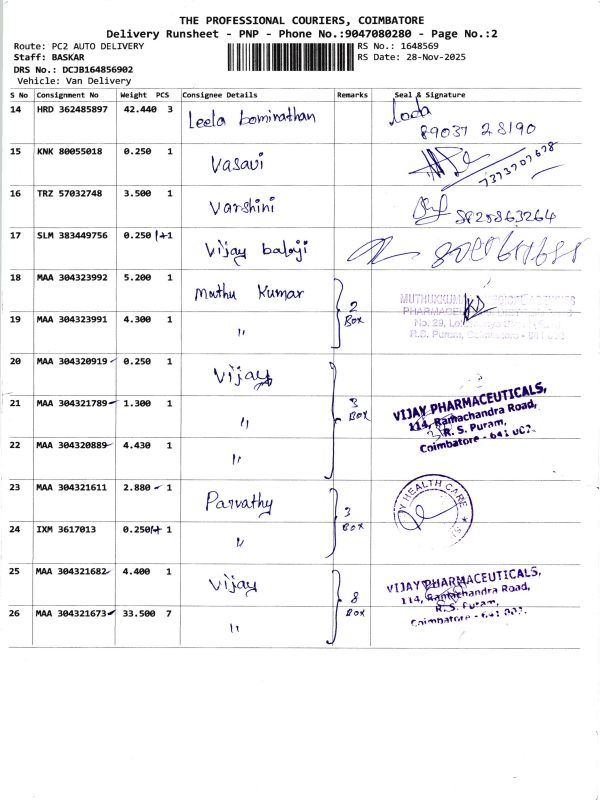 THE PROFESSIONAL COURIERS, COIMBATORE
Delivery Runsheet - PNP - Phone No.:9047080280 - Page No.:2
Route: PC2 AUTO DELIVERY RS No.: 1648569
Staff: BASKAR RS Date: 28-Nov-2025
DRS No.: DCJB164856902
Vehicle: Van Delivery
S No Consignment No Weight PCS Consignee Details Remarks Seal & Signature
14 HRD 362485897 42.440 3 Leela bominathan
89037 28190
15 KNK 80055018 0.250 1 Vasavi 7373707678
16 TRZ 57032748 3.500 1 Varshini
17 SLM 383449756 0.250 1 Vijay balaji
18 MAA 304323992 5.200 1 Muthu Kumar 2 Box
19 MAA 304323991 4.300 1 "
R.S. Puram, Coimbatore
20 MAA 304320919 0.250 1 Vijay 3 Box
21 MAA 304321789 1.300 1 "
VIJAY PHARMACEUTICALS,
114, Ramachandra Road,
R. S. Puram,
Coimbatore - 641 002.
22 MAA 304320889 4.430 1 "
23 MAA 304321611 2.880 1 Parvathy 3 Box
HEALTH CARE
24 IXM 3617013 0.250 1 "
25 MAA 304321682 4.400 1 Vijay 8 Box
VIJAY PHARMACEUTICALS,
114, Ramachandra Road,
R.S. Puram,
Coimbatore - 641 002.
26 MAA 304321673 33.500 7 "